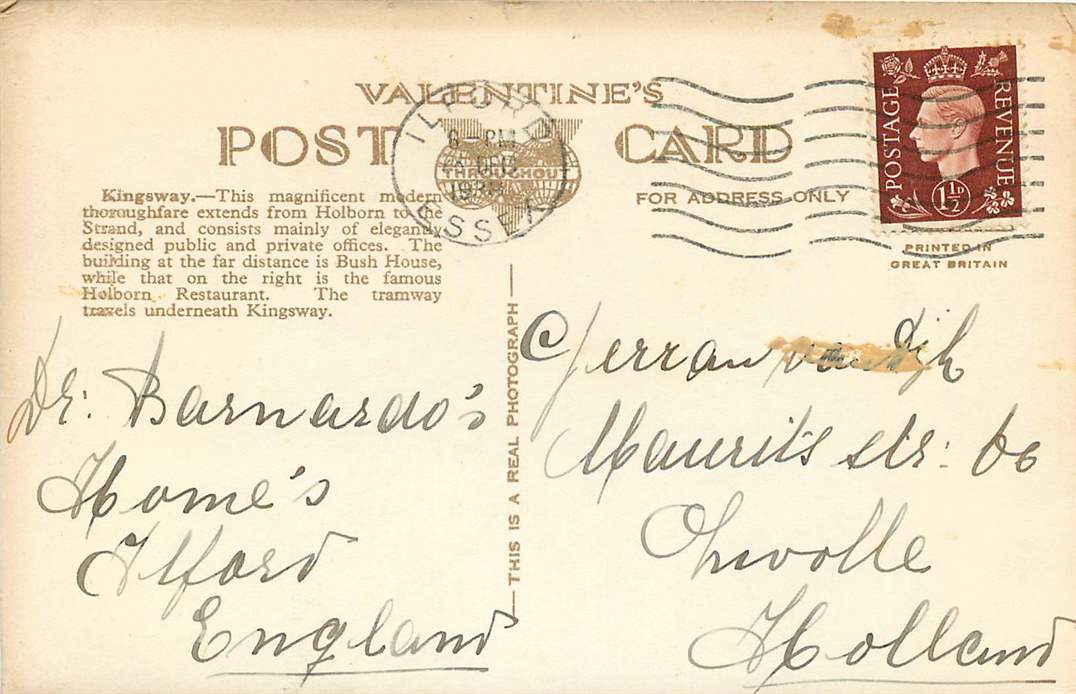 VALENTINE'S
POST CARD
THROUGHOUT
ILFORD
ESSEX
6 PM
1938
FOR ADDRESS ONLY
POSTAGE
REVENUE
1½D
PRINTED IN
GREAT BRITAIN
Kingsway.—This magnificent modern
thoroughfare extends from Holborn to the
Strand, and consists mainly of elegantly
designed public and private offices. The
building at the far distance is Bush House,
while that on the right is the famous
Holborn Restaurant. The tramway
travels underneath Kingsway.
—THIS IS A REAL PHOTOGRAPH—
Dr: Barnardo's
Home's
Ilford
England
Gerran van Dijk
Maurits str:
Zwolle
Holland